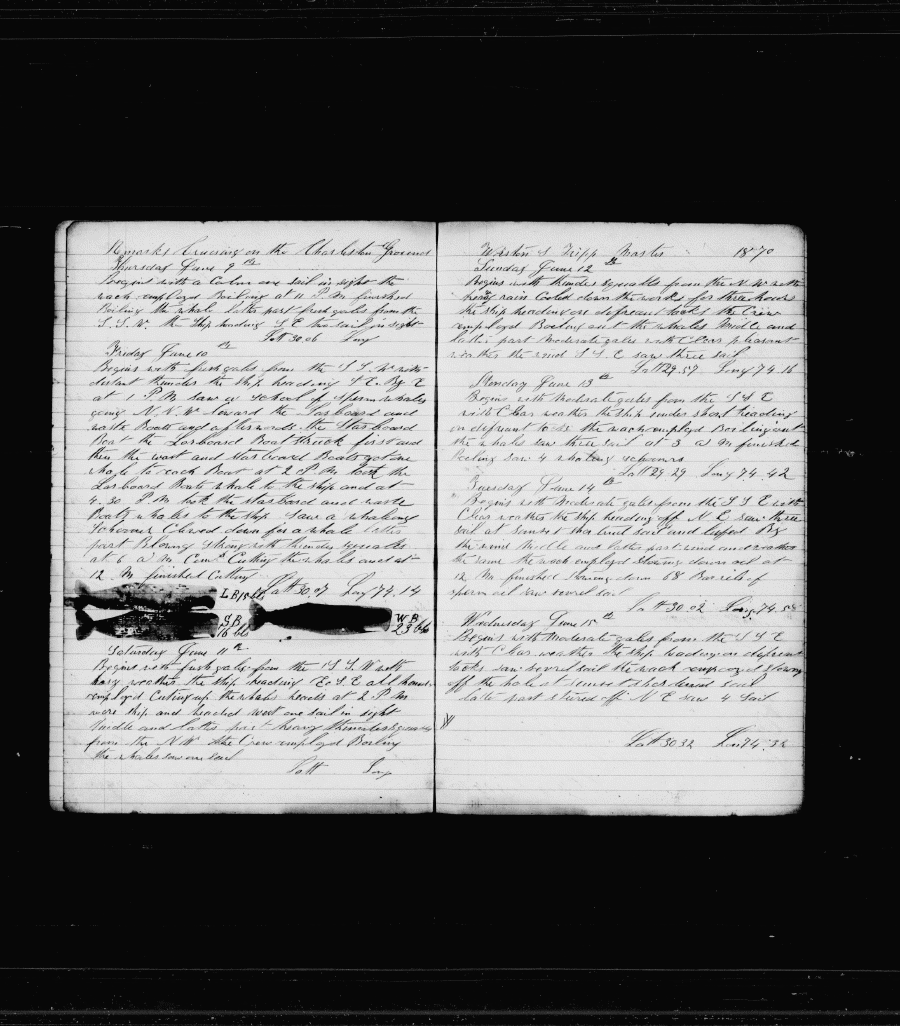 Remarks Cruising on the Charleston Ground
Thursday June 9 th
Begins with a calm one sail in sight the
wach employd Boiling at 11 P.M finished
Boiling the whale latter part fresh gales from the
S.S.W. the Ship heading S E two sail in sight
Latt 30.06 Long
Friday June 10 th
Begins with fresh gales from the S S. W with
distant thunder the ship heading S.E. By E
at 1 P.M saw a School of Sperm whales
going N.N.W Loward the Larboard and
waste Boats and afterwords the Starboard
Boat the Larboard Boat Struck first and
then the wast and Starboard Boats got one
whale to each Boat at 2 P M took the
Larboard Boats whale to the ship and at
4.30 P.M took the Starboard and waste
Boats whales to the ship Saw a whaling
Schooner Clewed down for a whale latter
part Blowing Strong with thunder squalls
at 6 a M Com Cutting the whales and at
12 M finished Cutting
Latt 30.07 Long 74.14
L.B 15 bbls
S.B 16 bbls
W B 23 bbls
Saturday June 11 th
Begins with fresh gales from the S S. W with
hazy weather the ship heading E.S.E all hands
employd Cuting up the whales heads at 2 P M
wore ship and headed West one sail in sight
Middle and latter part heavy thunder squalls
from the N W the Crew employd Boiling
the whales saw one sail
Latt Long
Weston S Tripp Master 1870
Sunday June 12 th
Begins with thunder squalls from the N.W with
heavy rain Cooled down the works for three hours
the ship heading on defreant tacks the Crew
employd Boiling out the whales Middle and
latter part Moderate gales with Clear pleasant
weather the wind S S.E saw three sail
Latt 29.57 Long 74.16
Monday June 13 th
Begins with Moderate gales from the S S E
with Clear weather the ship under short heading
on defreant tacks the wach employd Boiling out
the whales saw three sail at 3 a M finished
Boiling saw 4 whaling schooners
Latt 29.29 Long 74.42
Tuesday June 14 th
Begins with Moderate gales from the S S E with
Clear weather the ship heading off N E saw three
sail at sunset shortend sail and luffed By
the wind Middle and latter part wind and weather
the same the wach employd Stowing down oil at
12 M finished Stowing down 68 Barrels of
sperm oil saw several sail
Latt 30.02 Long 74.58
Wednesday June 15 th
Begins with Moderate gales from the S S E
with Clear weather the ship heading on defreant
tacks saw several sail the wach employd Stowing
off the hole at sunset shortend sail
latter part stired off N E saw 4 Sail
Latt 30 32 Lon 74.32